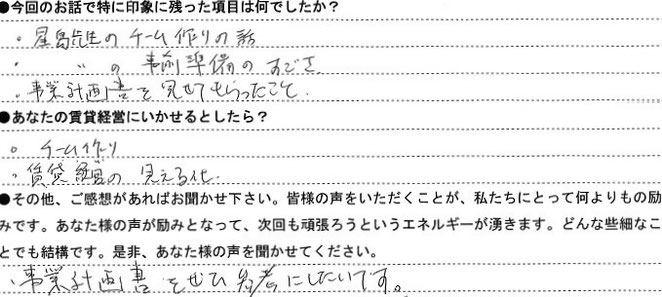 ●今回のお話で特に印象に残った項目は何でしたか？
・星島先生のチーム作りの話
・　〃　の　事前準備のすごさ
・事業計画書を見せてもらったこと。
●あなたの賃貸経営にいかせるとしたら？
○ チーム作り
・賃貸経営の見える化。
●その他、ご感想があればお聞かせ下さい。皆様の声をいただくことが、私たちにとって何よりもの励
みです。あなた様の声が励みとなって、次回も頑張ろうというエネルギーが湧きます。どんな些細なこ
とでも結構です。是非、あなた様の声を聞かせてください。
・事業計画書をぜひ参考にしたいです。